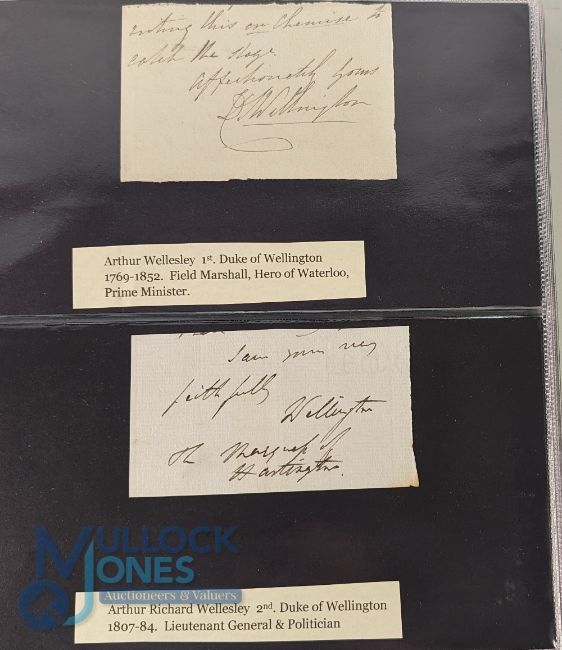 writing this on Chemise to
catch the stage.
affectionately yours
Wellington
Arthur Wellesley 1st. Duke of Wellington
1769-1852. Field Marshall, Hero of Waterloo,
Prime Minister.
I am yours very
faithfully
Wellington
The Marquess of
Hartington.
MULLOCK
JONES
Auctioneers & Valuers
Arthur Richard Wellesley 2nd. Duke of Wellington
1807-84. Lieutenant General & Politician